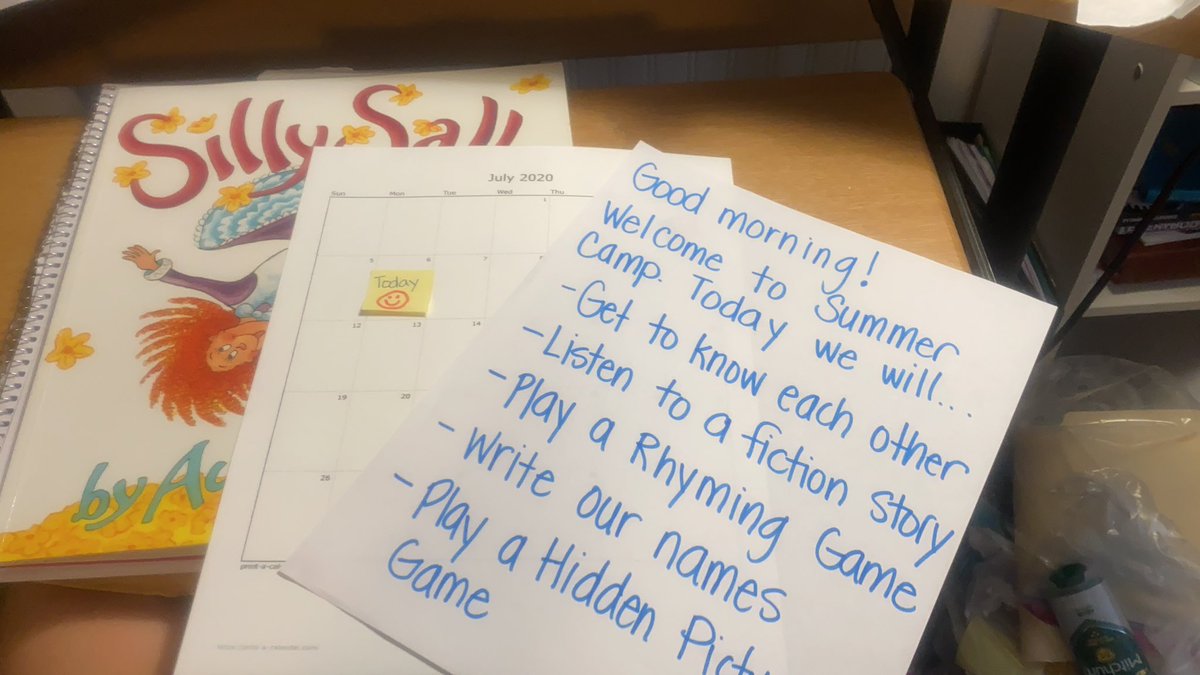 Silly Sall
by
July 2020
Sun Mon Tue Wed Thu
1
5 6 7 8
Today
12 13 14
19 20
26
Good morning!
Welcome to Summer
Camp. Today we will...
-Get to know each other
-Listen to a fiction story
-Play a Rhyming Game
-Write our names
-Play a Hidden Pict
Game
Mitchum